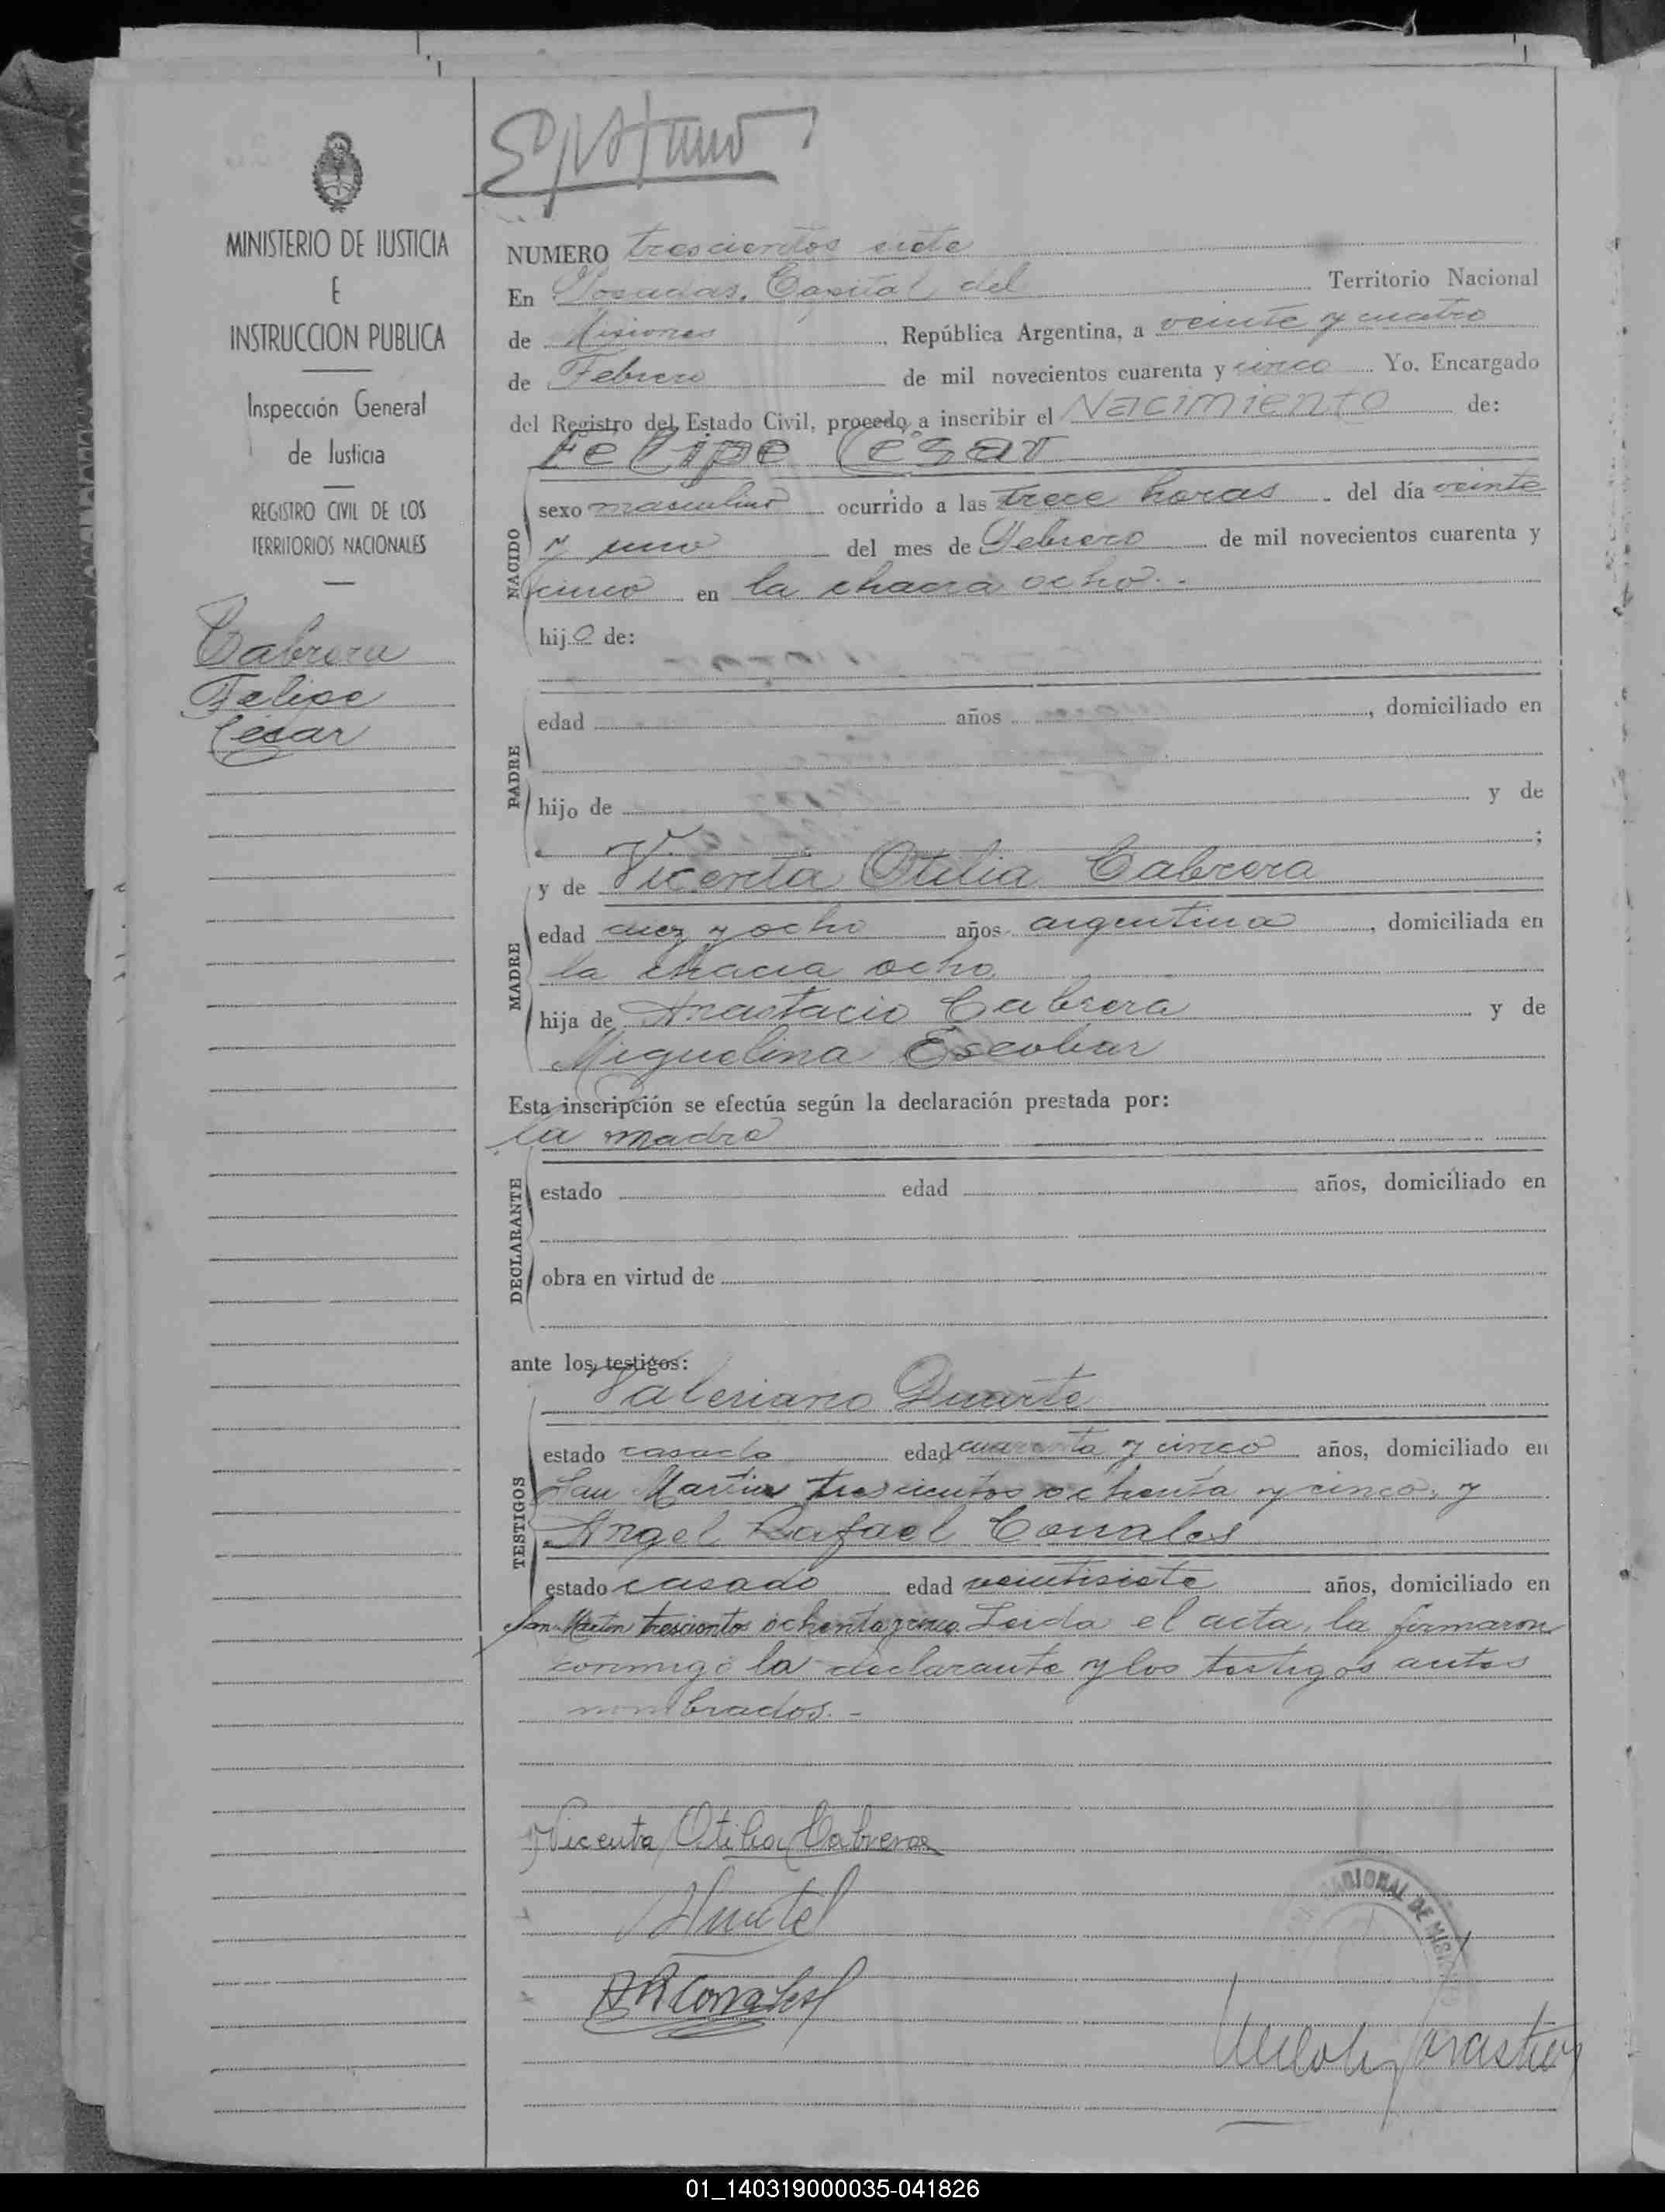 MINISTERIO DE JUSTICIA
E
INSTRUCCION PUBLICA
Inspección General
de Justicia
REGISTRO CIVIL DE LOS
TERRITORIOS NACIONALES
Cabrera
Felipe
César
NUMERO trescientos siete
En Posadas, Capital del Territorio Nacional
de Misiones, República Argentina, a veinte y cuatro
de Febrero de mil novecientos cuarenta y cinco Yo, Encargado
del Registro del Estado Civil, procedo a inscribir el Nacimiento de:
Felipe César
NACIDO
sexo masculino ocurrido a las trece horas del día veinte
y uno del mes de Febrero de mil novecientos cuarenta y
cinco en la chacra ocho.-
hijo de:
PADRE
edad años , domiciliado en
hijo de y de
;
MADRE
y de Vicenta Otilia Cabrera
edad diez y ocho años argentina, domiciliada en
la chacra ocho
hija de Anastacio Cabrera y de
Miguelina Escobar
Esta inscripción se efectúa según la declaración prestada por:
la madre
DECLARANTE
estado edad años, domiciliado en
obra en virtud de
ante los testigos:
Valeriano Duarte
TESTIGOS
estado casado edad cuarenta y cinco años, domiciliado en
San Martin trescientos ochenta y cinco, y
Angel Rafael Corrales
estado casado edad veintisiete años, domiciliado en
San Martin trescientos ochenta y cinco. Leida el acta, la firmaron
conmigo la declarante y los testigos antes
nombrados.-
Vicenta Otilia Cabrera
A R Corrales
NACIONAL DE MISIONES
01_140319000035-041826